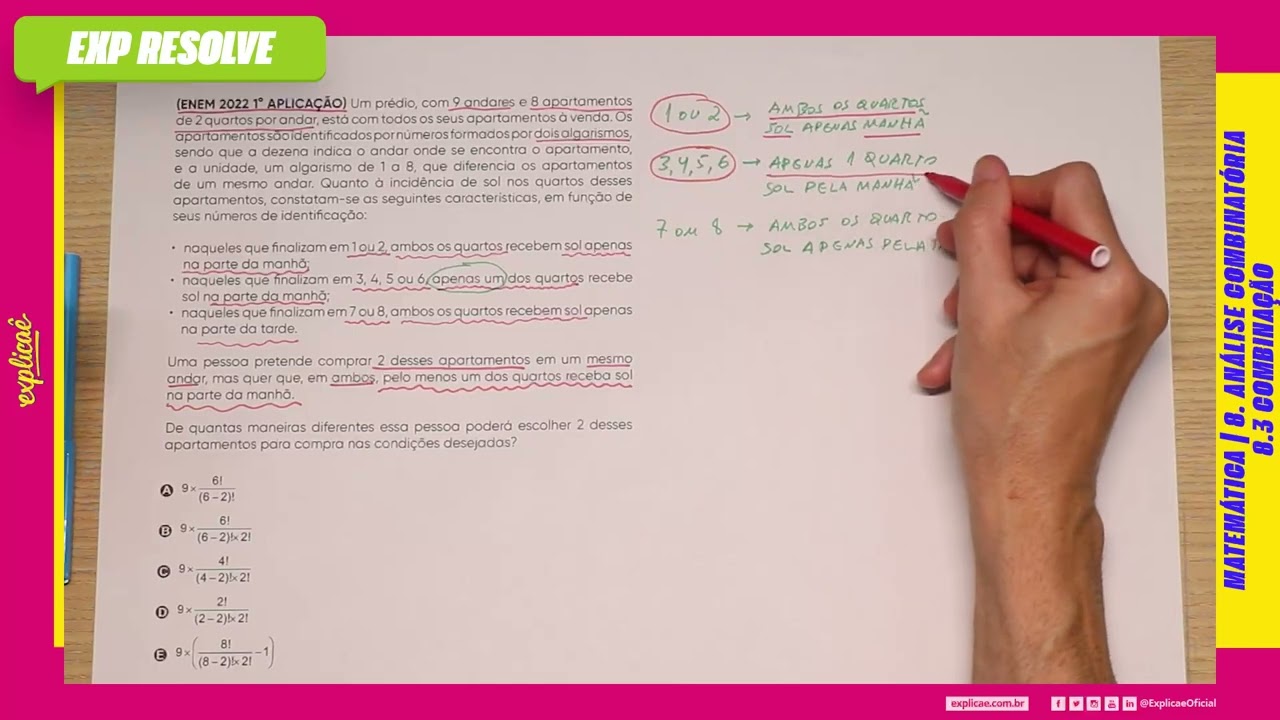 EXP RESOLVE
(ENEM 2022 1ª APLICAÇÃO) Um prédio, com 9 andares e 8 apartamentos
de 2 quartos por andar, está com todos os seus apartamentos à venda. Os
apartamentos são identificados por números formados por dois algarismos,
sendo que a dezena indica o andar onde se encontra o apartamento,
e a unidade, um algarismo de 1 a 8, que diferencia os apartamentos
de um mesmo andar. Quanto à incidência de sol nos quartos desses
apartamentos, constatam-se as seguintes características, em função de
seus números de identificação:
• naqueles que finalizam em 1 ou 2, ambos os quartos recebem sol apenas
na parte da manhã;
• naqueles que finalizam em 3, 4, 5 ou 6, apenas um dos quartos recebe
sol na parte da manhã;
• naqueles que finalizam em 7 ou 8, ambos os quartos recebem sol apenas
na parte da tarde.
Uma pessoa pretende comprar 2 desses apartamentos em um mesmo
andar, mas quer que, em ambos, pelo menos um dos quartos receba sol
na parte da manhã.
De quantas maneiras diferentes essa pessoa poderá escolher 2 desses
apartamentos para compra nas condições desejadas?
A 9 × 6! / (6 – 2)!
B 9 × 6! / (6 – 2)! × 2!
C 9 × 4! / (4 – 2)! × 2!
D 9 × 2! / (2 – 2)! × 2!
E 9 × ( 8! / (8 – 2)! × 2! – 1 )
1 OU 2 → AMBOS OS QUARTOS
SOL APENAS MANHÃ
3, 4, 5, 6 → APENAS 1 QUARTO
SOL PELA MANHÃ
7 OU 8 → AMBOS OS QUARTO
SOL APENAS PELA
explicaê
MATEMÁTICA | 8. ANÁLISE COMBINATÓRIA
8.3 COMBINAÇÃO
explicae.com.br
@ExplicaeOficial